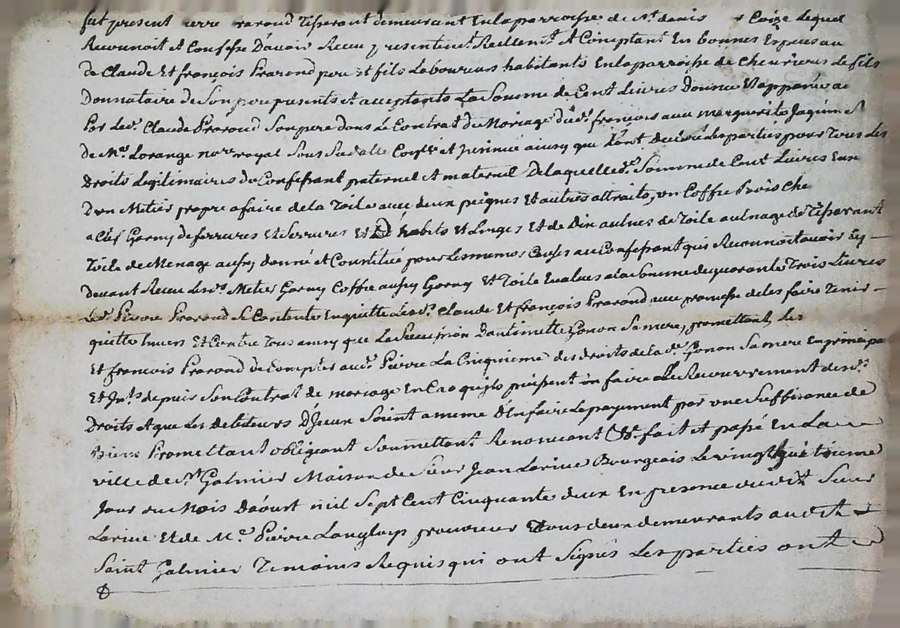 fut present pierre Prarond Tisserant demeurant En la parroisse de St. denis s Coize Lequel
Reconnoit et Confesse D'avoir Receu presentemt. Reellemt. et Comptant En bonnes Especes au
de Claude Et françois Prarond pere et fils Laboureurs habitants En la parroisse de Chevrieres Le fils
Donnataire de Son pere presents et acceptants La Somme de Cent Livres Donnée Et
Par Led. Claude Prarond Son pere dans Le Contrat du Mariage dud. françois avec marguerite Jaquemet
de Me. Lorange nore royal Sous Sa datte et ainsy que L'ont Les parties pour Tous Les
Droits Legitimaires du Confessant paternel et maternel De laquelle d. Somme de Cent Livres Eux
D'un Metier propre a faire de la Toile avec deux peignes Et autres attraits, un Coffre bois Che
a Clef Garny de ferrures Et Serrures Et D habits Et Linges Et de Dix aulnes de Toile aulnage de Tisserant
Toile de Menage aussy donné et Constitué pour Les memes Causes au Confessant qui Reconnoit avoir Cy
devant Receu Lesd. Metier Garny Coffre aussy Garny Et Toile Evalués a la Somme de quarante Trois Livres
Led. Pierre Prarond Se Contente En quitte Lesd. Claude Et françois Prarond avec promesse de les faire Tenir
quitte Envers Et Contre Tous ainsy que La Succession D'antoinette Gonon Sa mere, promettant Les
Et francois Prarond de compter aud. Pierre La Cinquieme des droits de lad. Gonon Sa mere En principal
Et Ints. depuis Son Contrat de mariage En Cas qu'ils puissent En faire Le Recouvrement desd.
Droits Et que Les debiteurs D'Iceux Soient a meme d'En faire Le payement par une Suffisance de
biens Promettant obligeant Soumettant Renonceant &. fait et passé En La
ville de St. Galmier Maison de Sieur Jean Larive Bourgeois Le vingt huitieme
Jour du Mois D'aoust mil Sept Cent Cinquante deux En presence dudit Sieur
Larive Et de Me. Pierre Langlois procureur Tous deux demeurants audit
Saint Galmier Temoins Requis qui ont Signés Les parties ont